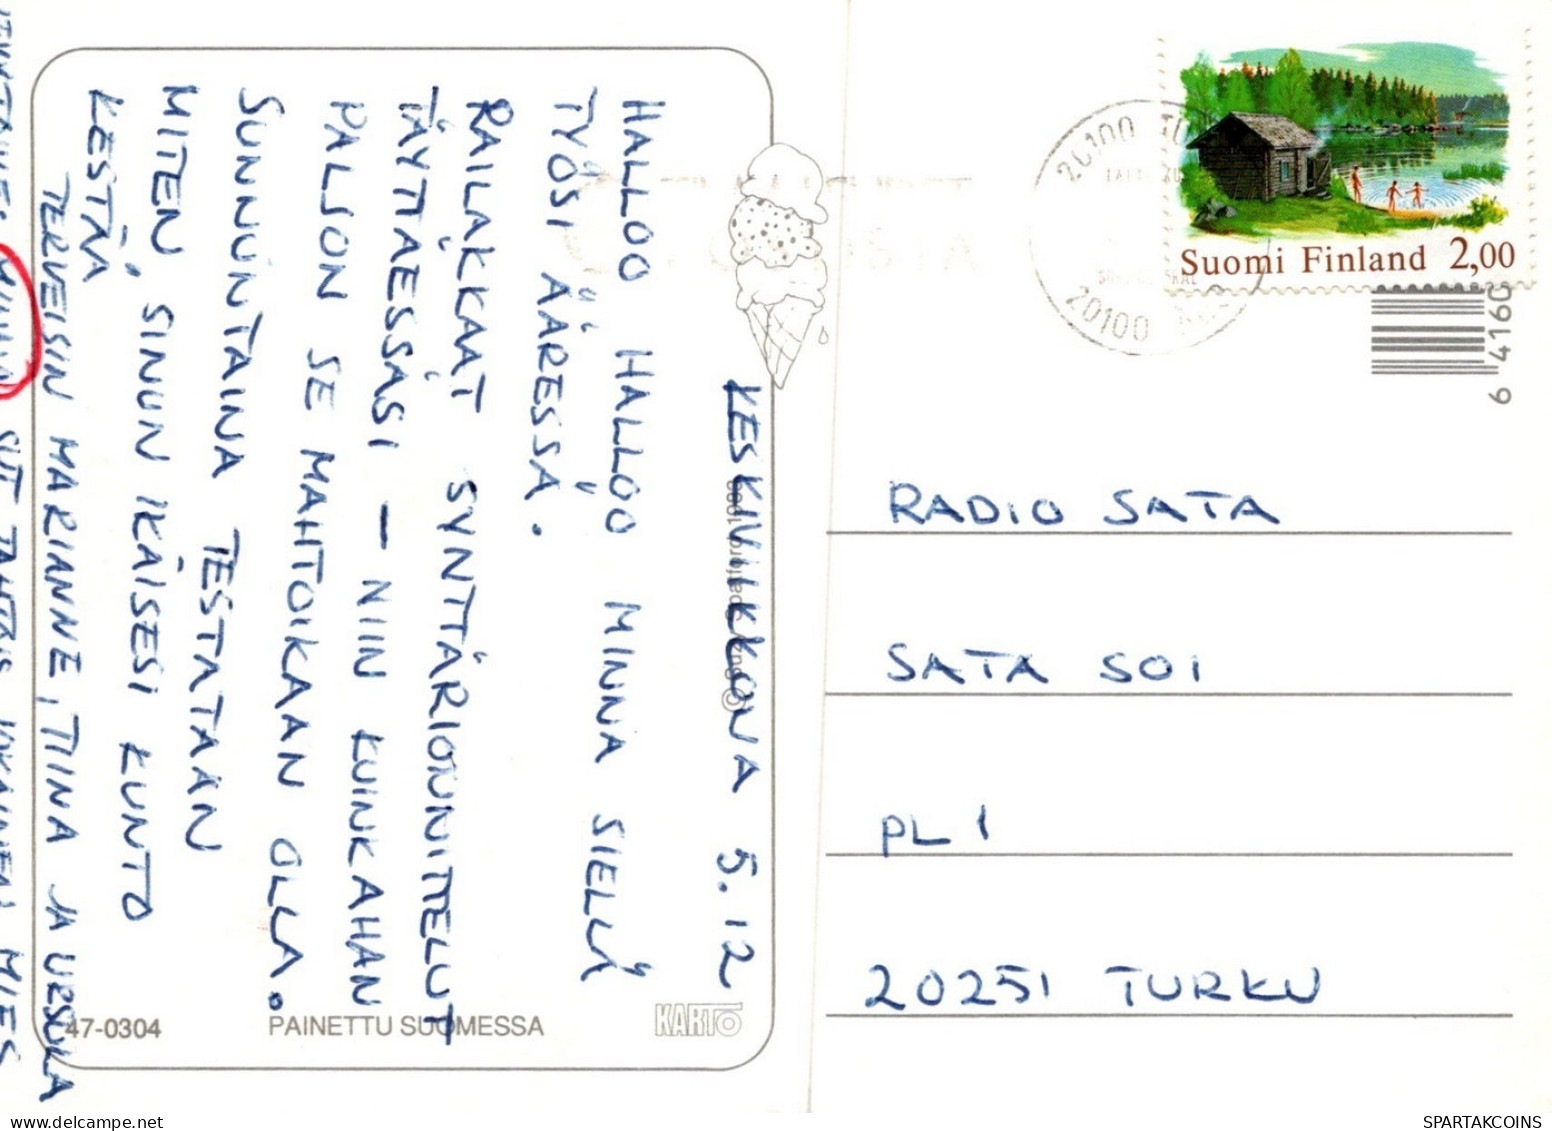 KESKIVIIKKONA 5.12
HALLOO HALLOO MINNA SIELLÄ
TYÖSI ÄÄRESSÄ.
RAILAKKAAT SYNTTÄRIONNITTELUT
TÄYTTÄESSÄSI – NIIN KUINKAHAN
PALJON SE MAHTOIKAAN OLLA.
SUNNUNTAINA TESTATAAN
MITEN SINUN IKÄISESI KUNTO
KESTÄÄ
TERVEISIN MARIANNE, TIINA JA URSULA
SUT JOKAINEN MIES
47-0304
PAINETTU SUOMESSA
KARTO
20100
20100
Suomi Finland 2,00
6 4160
RADIO SATA
SATA SOI
PL 1
20251 TURKU
SPARTAKCOINS